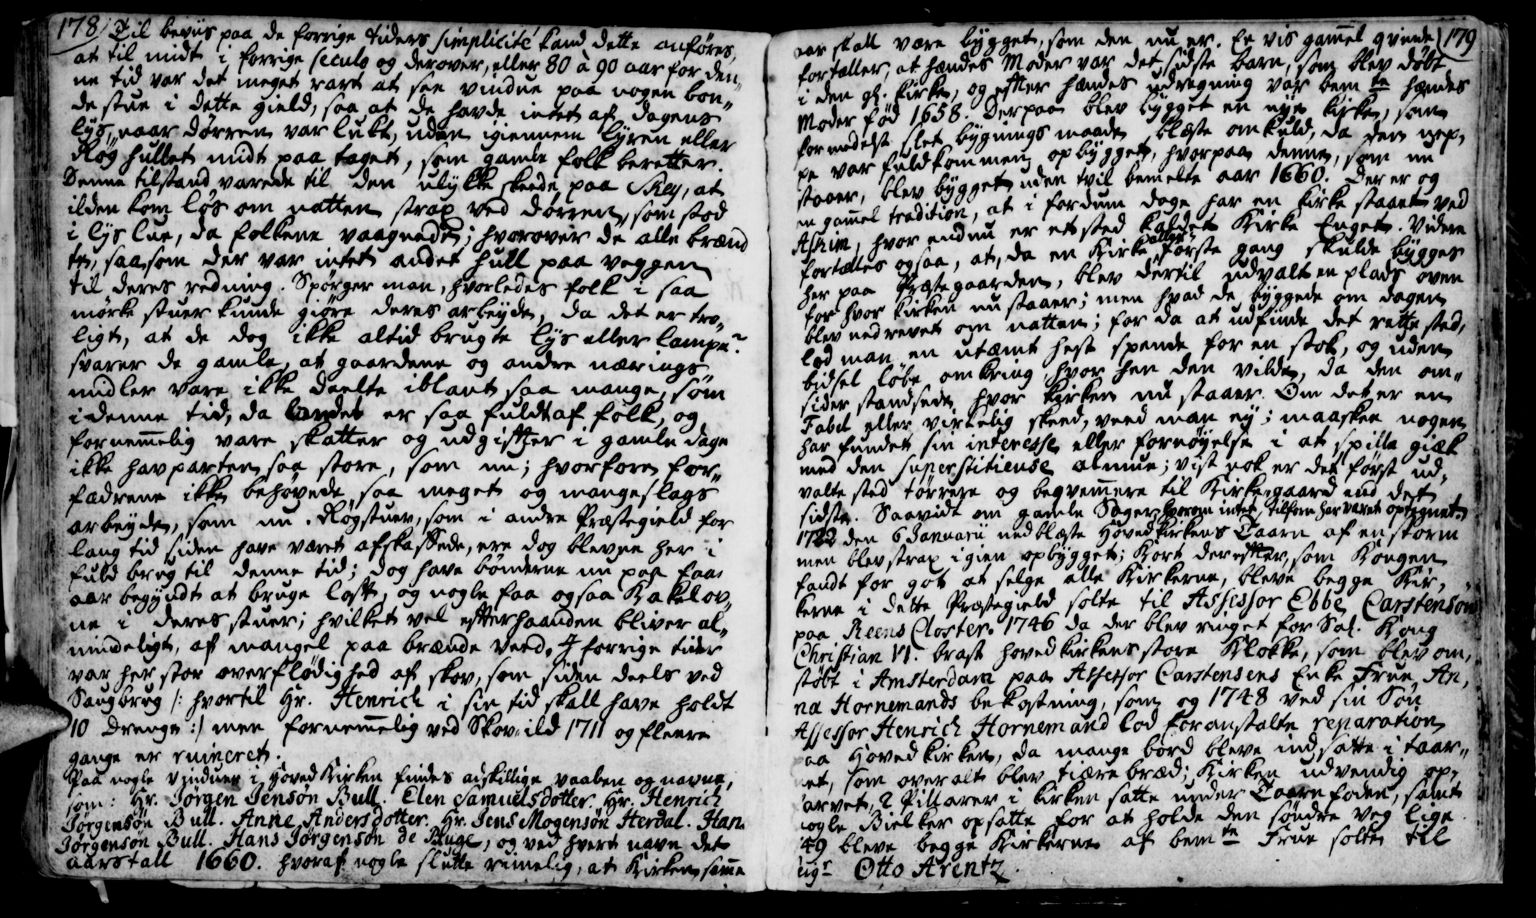 178
Til beviis paa de forrige tiders simplicité kand dette anføres,
at til midt i forrige seculo og derover, eller 80 à 90 aar for den-
ne tid var det meget rart at see vindue paa nogen bon-
de stue i dette gield, saa at de havde intet af dagens
lys, naar dørren var lukt, uden igiennem lyren eller
Røg hullet midt paa taget, som gamle folk beretter.
Denne tilstand varede til den ulykke skeede paa Skey, at
ilden kom løs om natten strax ved dørren, som stod
i lys lue, da folkene vaagnede; hvorover de alle brænd
te, saasom der var intet andet hull paa veggen
til deres redning. Spørger man, hvorledes folk i saa
mørke stuer kunde giøre deres arbeyde, da det er tro-
ligt, at de dog ikke altid brugte lys eller lampe?
svarer de gamle, at gaardene og andre nærings
midler vare ikke deelte iblant saa mange, som
i denne tid, da landet er saa fuldt af folk, og
fornemmelig vare skatter og udgifter i gamle dage
ikke havparten saa store, som nu; hvorfore for-
fædrene ikke behøvede saa meget og mange slags
arbeyde, som nu. Røgstuer, som i andre Præstegield for
lang tid siden have været afskaffede, ere dog blevne her i
fuld brug til denne tid; dog have bønderne nu paa faa
aar begyndt at bruge loft, og nogle faa ogsaa Kakelov-
ne i deres stuer; hvilket vel efterhaanden bliver al-
mindeligt, af mangel paa brænde veed. I forrige tider
var her stor overflødighed af skov, som siden deels ved
Saugbrug /: hvortil Hr. Henrich i sin tid skall have holdt
10 Drenge :/ men fornemmelig ved Skov-ild 1711 og fleere
gange er ruineret.
Paa nogle vinduer i Hoved Kirken findes adskillige vaaben og navne,
som: Hr. Jørgen Jensøn Bull. Elen Samuelsdotter. Hr. Henrich
Jørgensøn Bull. Anne Andersdotter. Hr. Jens Mogensøn Herdal. Han
Jørgensøn Bull. Hans Jørgensøn de Pauge, og ved hvert navn det
aarstall 1660. hvoraf nogle slutte rimelig, at Kirken samme
179
aar skall være bygget, som den nu er. En vis gamel qvinde
fortæller, at hændes Moder var det sidste barn, som blev døbt
i den gl. Kirke, og efter hændes udregning var bemte hændes
Moder fød 1658. Derpaa blev bygget en nye Kirke, som
formedelst slet bygnings maade blæste omkuld, da den nep-
pe var fuldkommen opbygget, hvorpaa denne, som nu
staaer, blev bygget uden tvil bemelte aar 1660. Der er og
en gammel tradition, at i fordum dage har en Kirke staaet ved
Askim, hvor endnu er et sted kaldet Kirke Enget. Videre
fortælles ogsaa, at, da en Kirke aller første gang skulde bygges
her paa Præstegaarden, blev dertil udvalt en plads oven
for hvor Kirken nu staaer; men hvad de byggede om dagen
blev nedrevet om natten; for da at udfinde det rette sted,
lod man en utæmt hest spende for en stok, og uden
bidsel løbe omkring hvor hen den vilde, da den om-
sider standsede hvor Kirken nu staaer. Om det er en
Fabel eller virkelig skeed, veed man ey; maaskee nogen
har fundet sin interesse eller fornøyelse i at spille giæk
med den superstitieuse almue; vist nok er det først ud-
valte sted tørrere og beqvemmere til Kirkegaard end det
sidste. Saavidt om gamle Sager, hvorom intet tilforn har været optegnet.
1722 den 6 Januarii nedblæste Hovedkirkens Taarn af en storm
men blev strax igien opbygget; Kort derefter, som Kongen
fandt for got at selge alle Kirkerne, bleve begge Kir-
kerne i dette Præstegield solte til Assessor Ebbe Carstensøn
paa Reens Closter. 1746 da der blev ringet for Sal. Kong
Christian VI. brast hovedkirkens store Klokke, som blev om-
støbt i Amsterdam paa Assessor Carstensens Enke Frue An-
na Hornemands bekostning, som og 1748 ved sin Søn
Assessor Henrich Hornemand lod foranstalte reparation
paa Hovedkirken, da mange bord bleve indsatte i taar-
net, som overalt blev tiærebræd; Kirken udvendig op-
farvet, 2 Pillarer i Kirken satte under Taarnfoden, samt
nogle Bielker opsatte for at holde den søndre veg lige.
49 bleve begge Kirkerne af bemte Frue solte til
Otto Arentz.